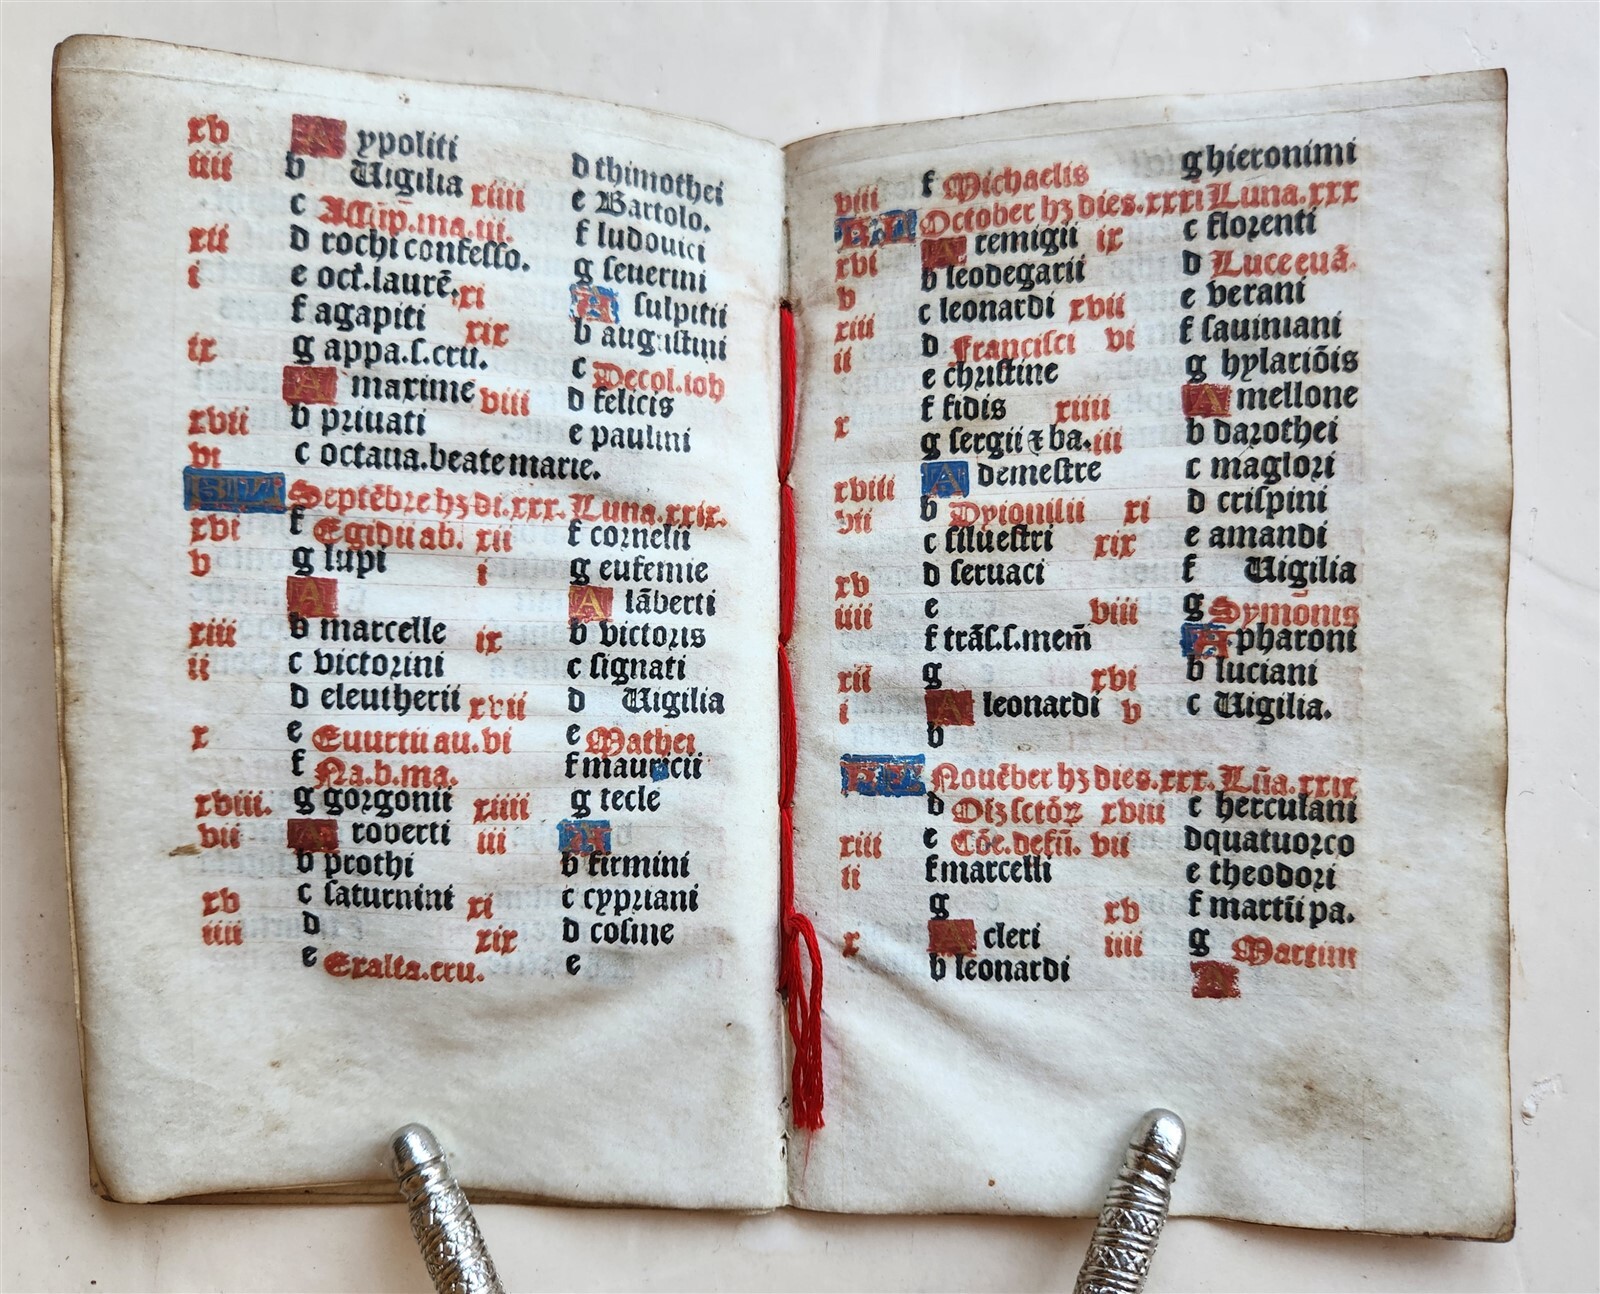 xv A ypoliti
iiii b Uigilia
c Assūp.ma.iii.
xii d rochi confesso.
i e oct.laurē.
f agapiti
ix g appa.s.cru.
A maxime
xvii b priuati
vi c octaua.beate marie.
d thimothei
xiiii e Bartolo.
f ludouici
g seuerini
xi A sulpitii
xix b augustini
c Decol.ioh
viii d felicis
e paulini
KL Septēbre hʒ di.xxx. Luna.xxix.
xvi f Egidii ab.
v g lupi
A
xiii b marcelle
ii c victorini
d eleutherii
x e Euurtii au.
f Na.b.ma.
xviii. g gorgonii
vii A roberti
b prothi
xv c saturnini
iiii d
e Exalta.cru.
xii f cornelii
i g eufemie
A lāberti
ix b victoris
c signati
xvii d Uigilia
vi e Mathei
f mauricii
xiiii g tecle
iii A
b firmini
xi c cypriani
xix d cosme
e
viii f Michaelis
g hieronimi
KL October hʒ dies.xxxi Luna.xxx
xvi A remigii
v b leodegarii
xiii c leonardi
ii d Francisci
e christine
x f fidis
g sergii ⁊ ba.
xviii A demestre
vii b Dyionisii
c siluestri
xv d seruaci
iiii e
f trās.s.mem̄
xii g
i A leonardi
b
ix c florenti
d Luce euā.
xvii e verani
vi f sauiniani
g hylariōis
xiiii A mellone
iii b darothei
c maglori
xi d crispini
xix e amandi
f Uigilia
viii g Symonis
A pharoni
xvi b luciani
v c Uigilia.
KL Nouēber hʒ dies.xxx. Lūa.xxix
d Oīʒ sctōꝝ
xiii e Cōe.defū.
ii f marcelli
g
x A cleri
b leonardi
xviii c herculani
vii d quatuorco
e theodori
xv f martii pa.
iiii g Martini
A